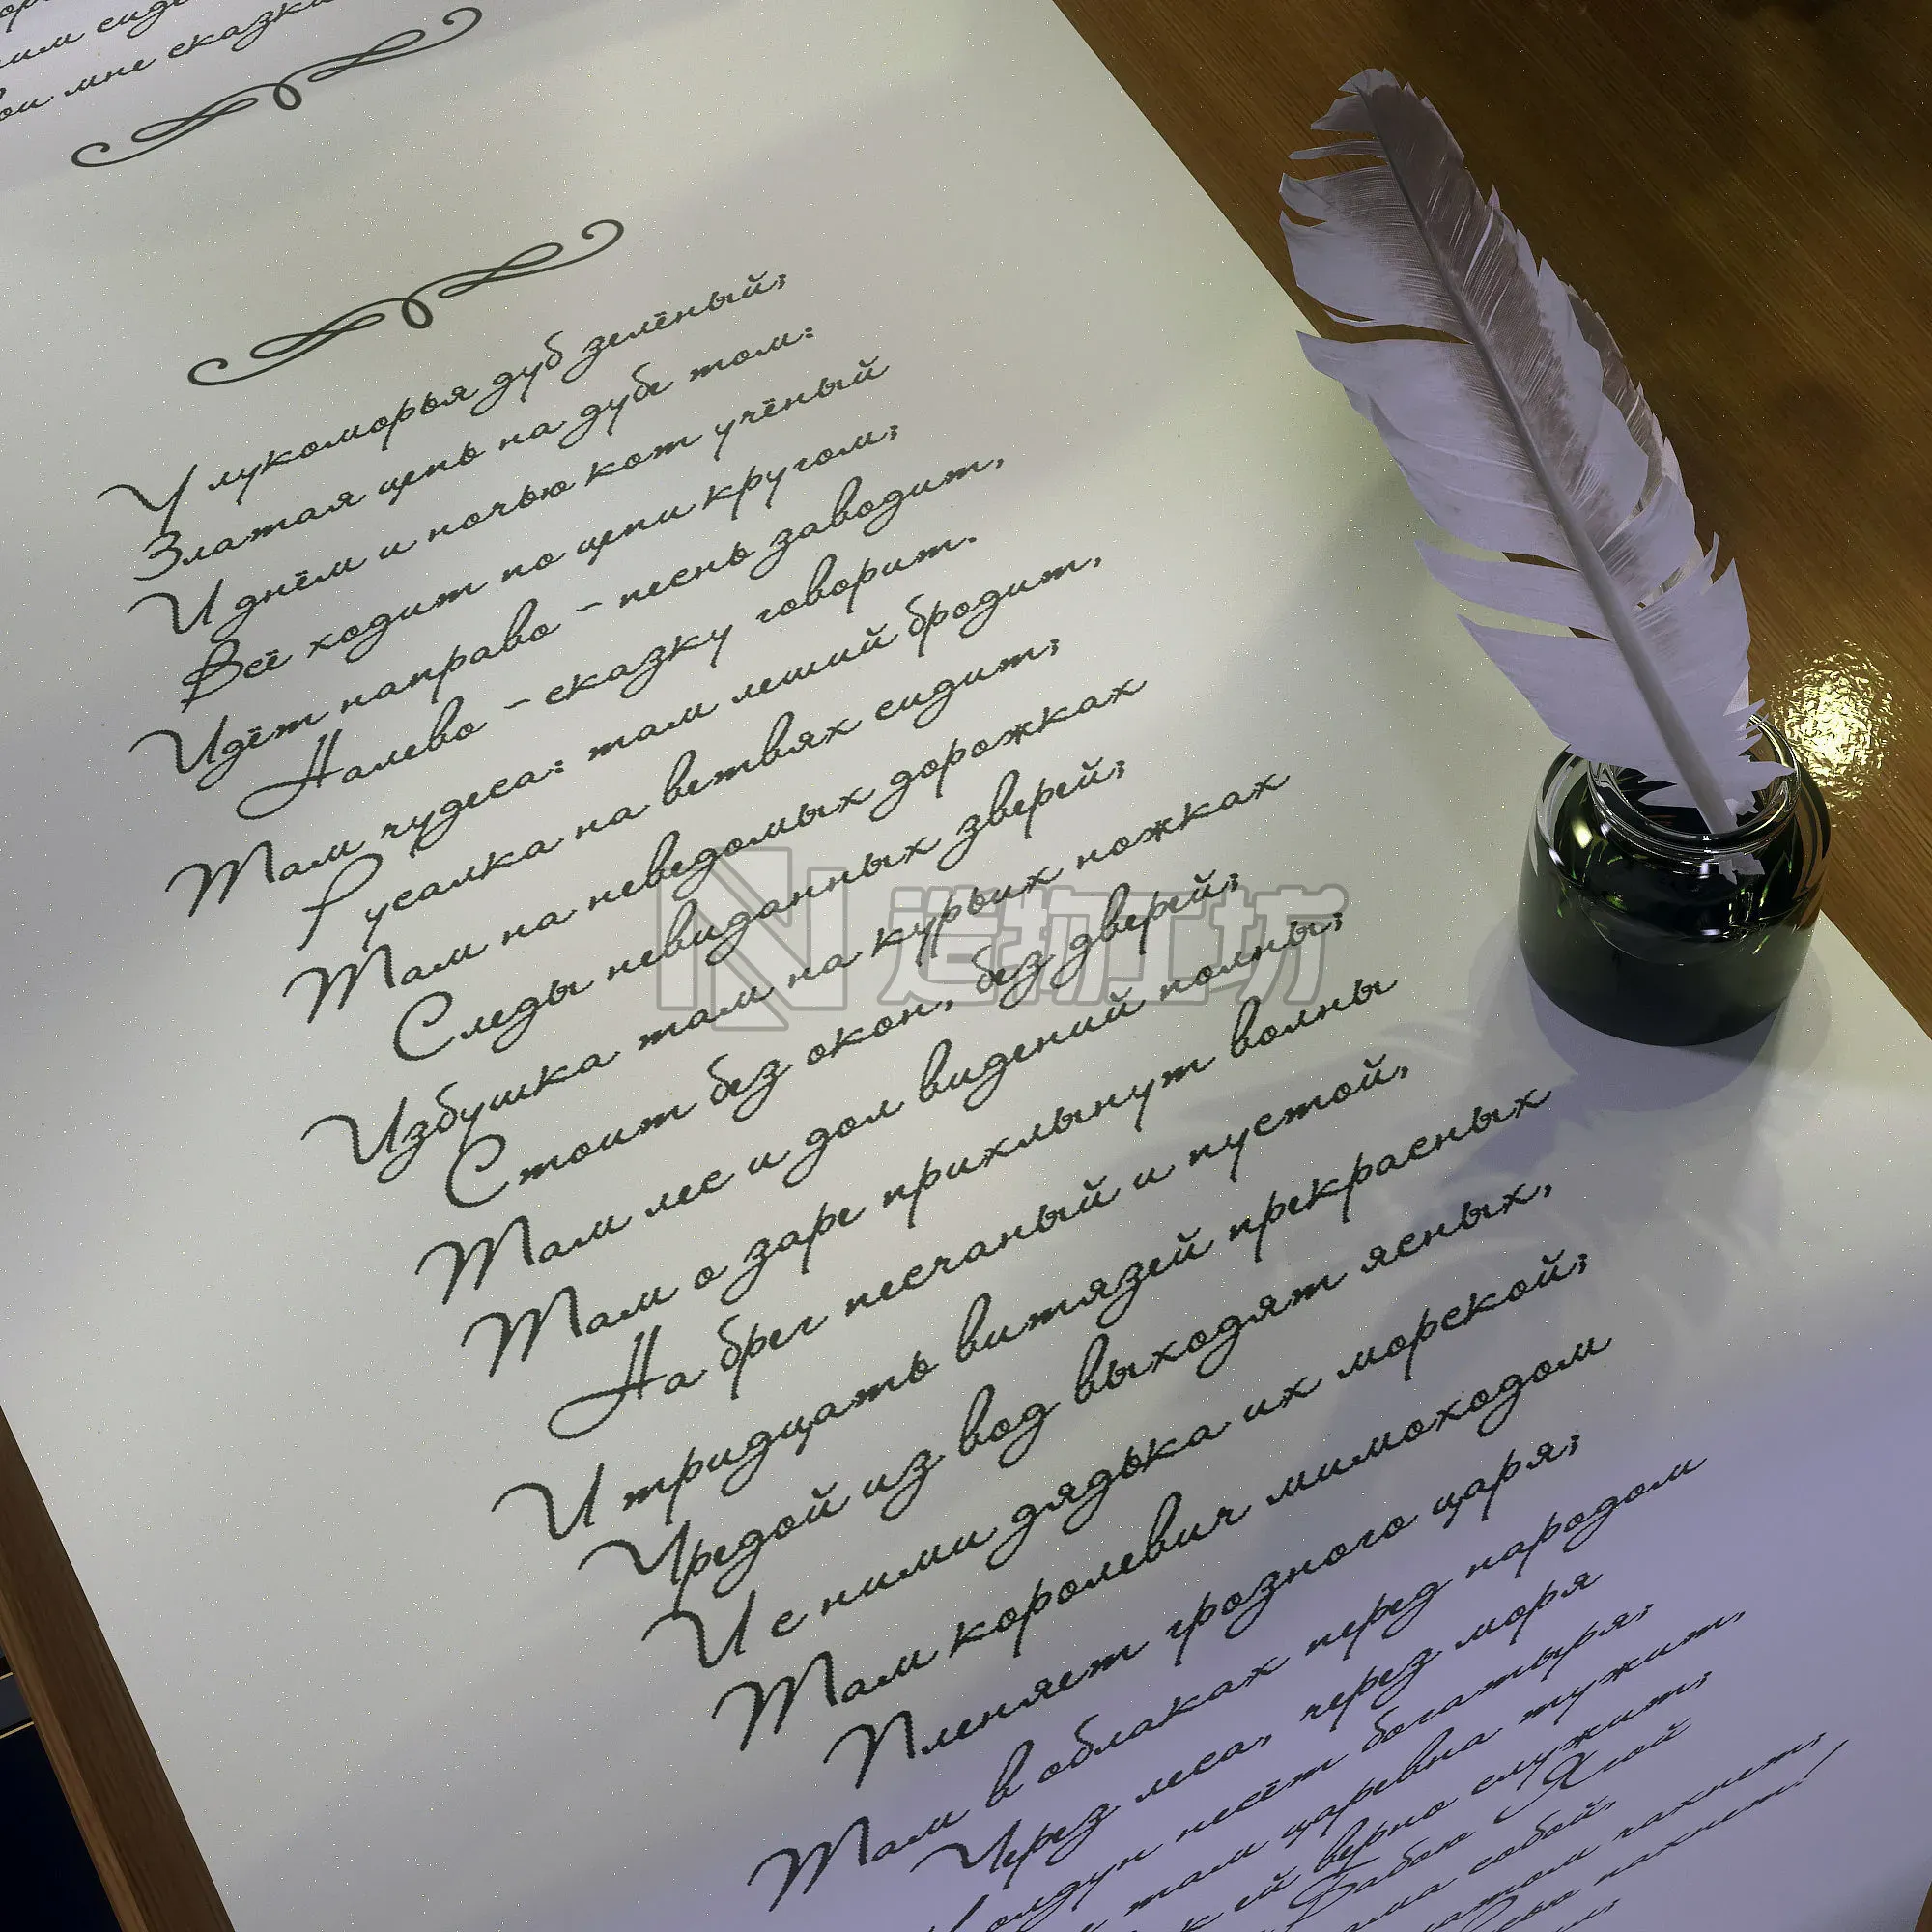 мне сказки
У лукоморья дуб зелёный;
Златая цепь на дубе том:
И днём и ночью кот учёный
Всё ходит по цепи кругом;
Идёт направо - песнь заводит,
Налево - сказку говорит.
Там чудеса: там леший бродит,
Русалка на ветвях сидит;
Там на неведомых дорожках
Следы невиданных зверей;
Избушка там на курьих ножках
Стоит без окон, без дверей;
Там лес и дол видений полны;
Там о заре прихлынут волны
На брег песчаный и пустой,
И тридцать витязей прекрасных
Чредой из вод выходят ясных,
И с ними дядька их морской;
Там королевич мимоходом
Пленяет грозного царя;
Там в облаках перед народом
Через леса, через моря
Колдун несёт богатыря;
там царевна тужит,
ей верно служит;
Бабою Ягой
собой,
чахнет,
пахнет!
造物工坊